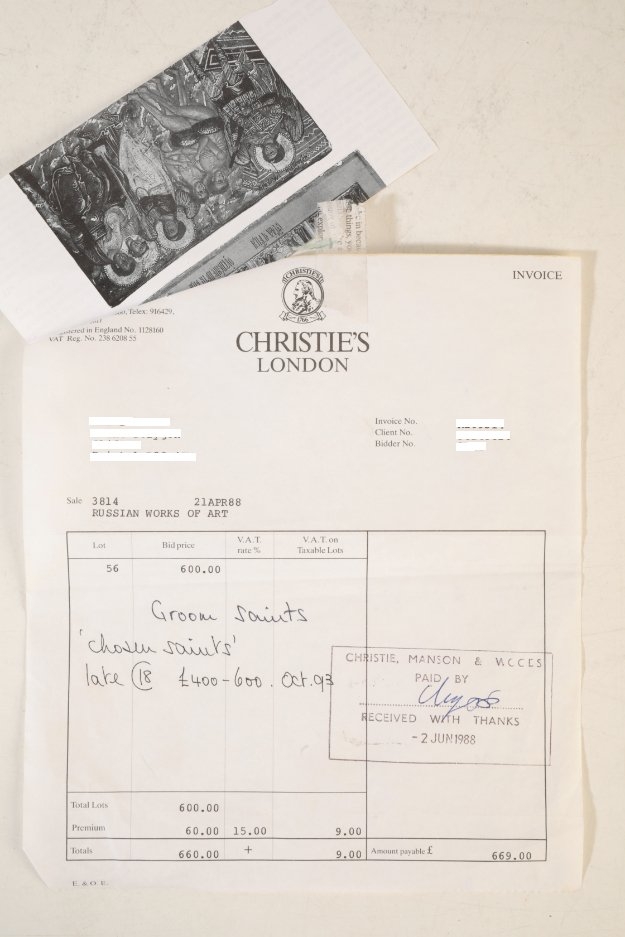 Telex: 916429,
in England No. 1128160
VAT Reg. No. 238 6208 55
CHRISTIE'S
1766
INVOICE
CHRISTIE'S
LONDON
Invoice No.
Client No.
Bidder No.
Sale 3814 21APR88
RUSSIAN WORKS OF ART
Lot Bid price V.A.T. rate % V.A.T. on Taxable Lots
56 600.00
Groom Saints
'chosen saints'
late C18 £400-600. Oct. 93
CHRISTIE, MANSON & WOODS
PAID BY
RECEIVED WITH THANKS
-2 JUN 1988
Total Lots 600.00
Premium 60.00 15.00 9.00
Totals 660.00 + 9.00 Amount payable £ 669.00
E. & O. E.